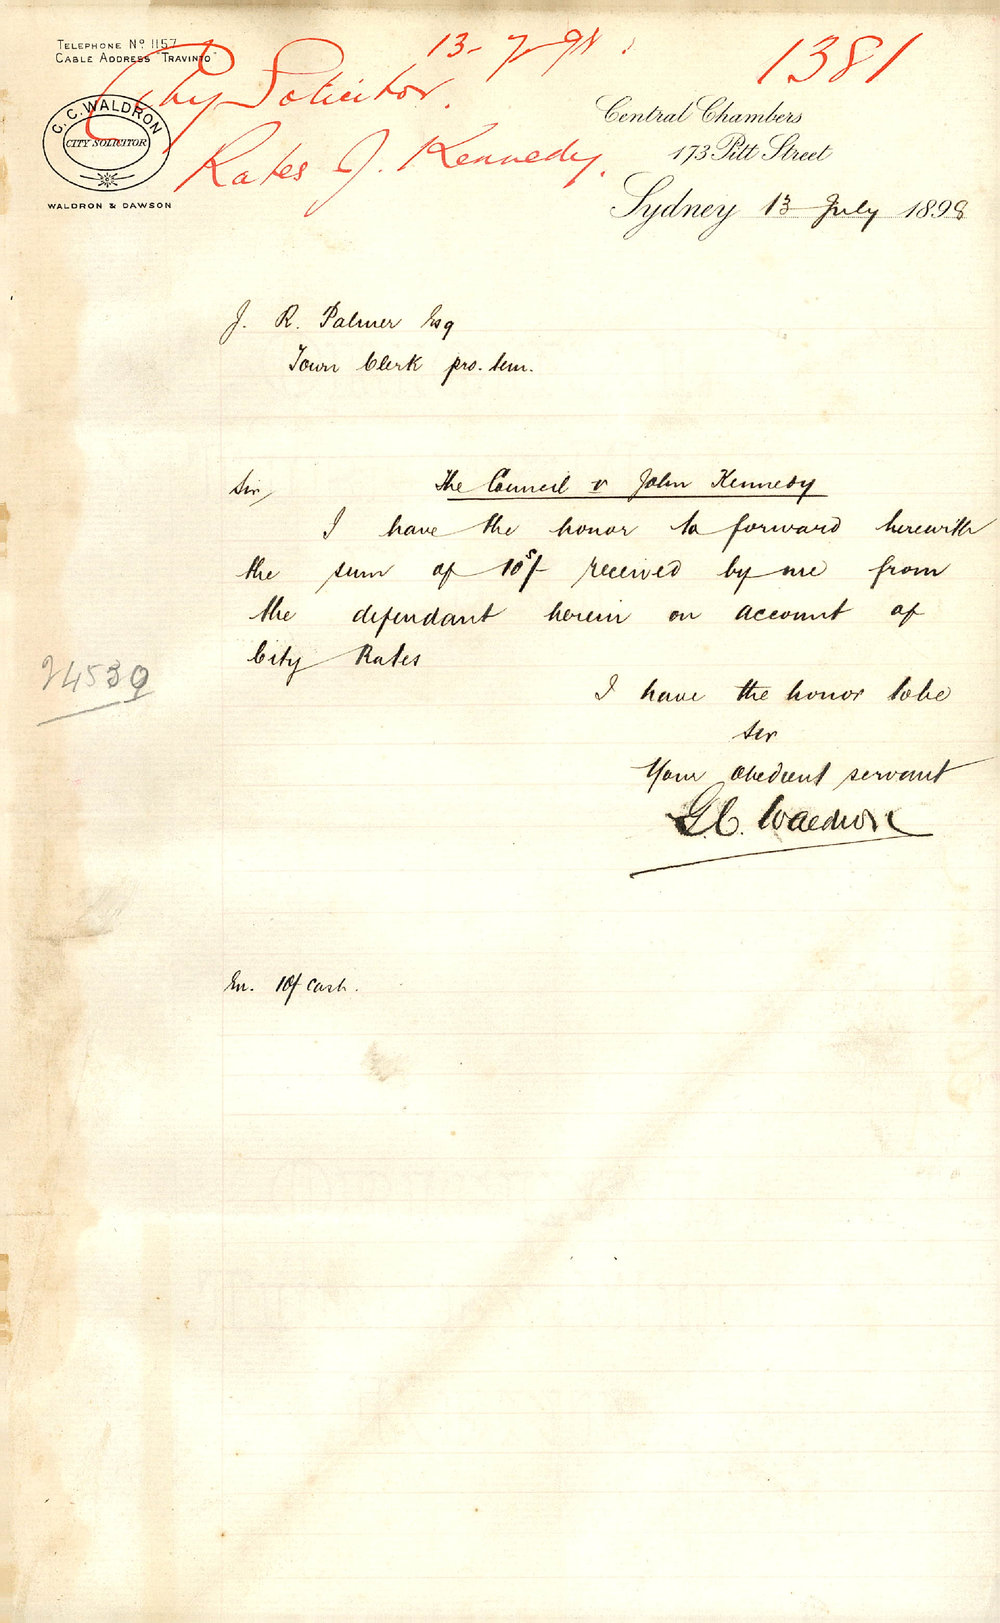 TELEPHONE Nº 1157
CABLE ADDRESS "TRAVINTO"
13-7-98.
1381
City Solicitor.
Rates J. Kennedy.
G. C. WALDRON
CITY SOLICITOR
WALDRON & DAWSON
Central Chambers
173 Pitt Street
Sydney 13 July 1898
J. R. Palmer Esq
Town Clerk pro. tem.
Sir, The Council v John Kennedy
I have the honor to forward herewith
the sum of 10s/ received by me from
the defendant herein on account of
City Rates
24539
I have the honor to be
Sir
Your obedient servant
G. C. Waldron
En. 10/ cash.